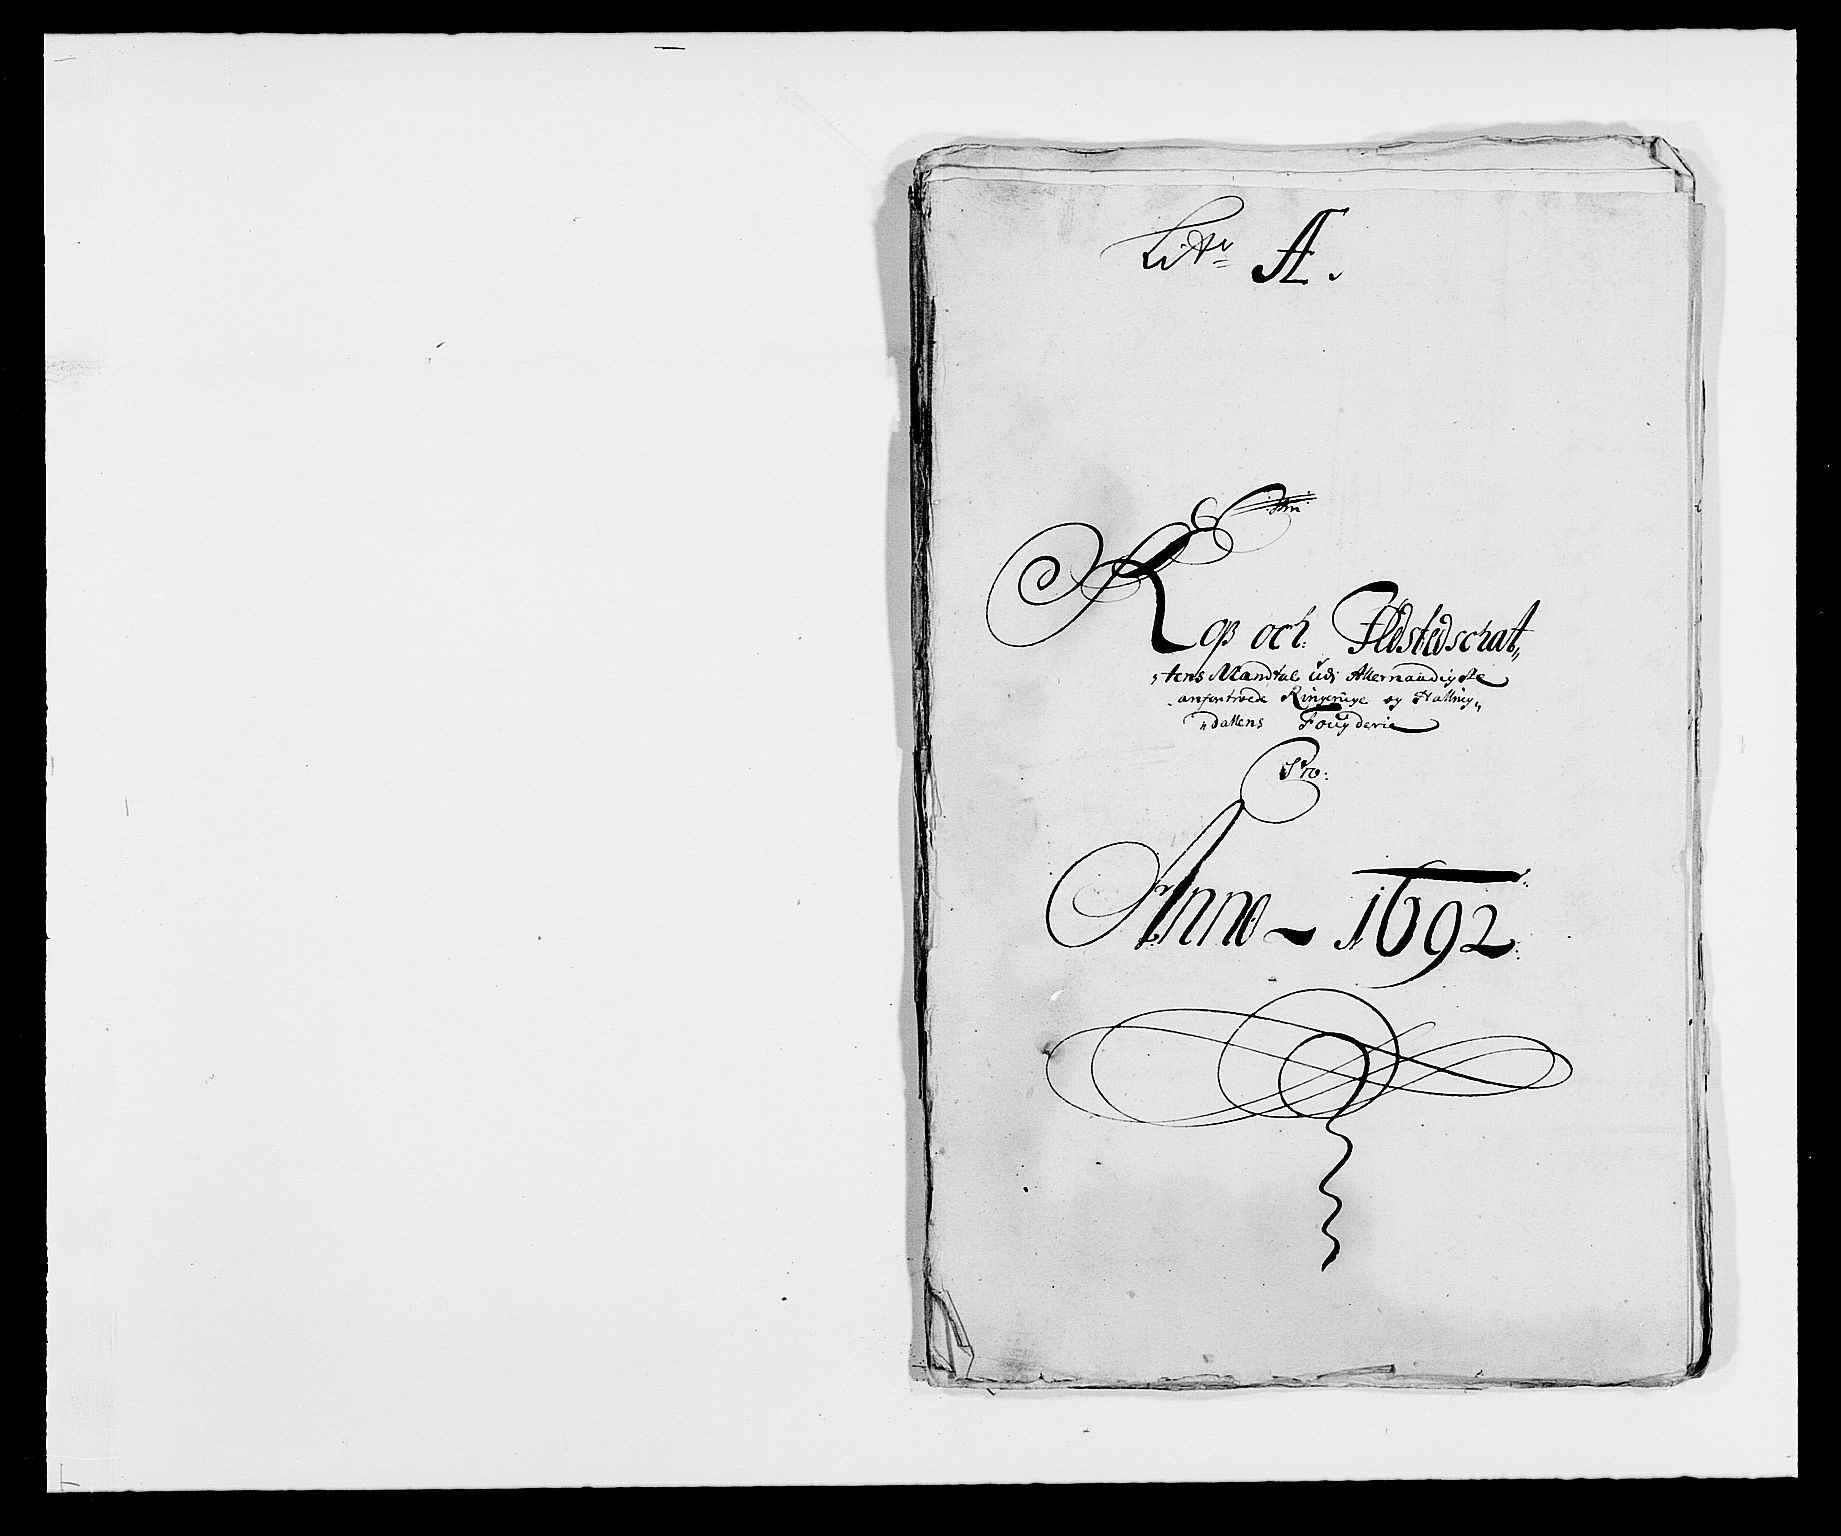 Litr A.
Kop och Ildstedschat„
„tens Mandtal udj Allernaadigste
anfertroede Ringerige og Halling„
„dallens Fougderie
Pro:
Anno - 1692